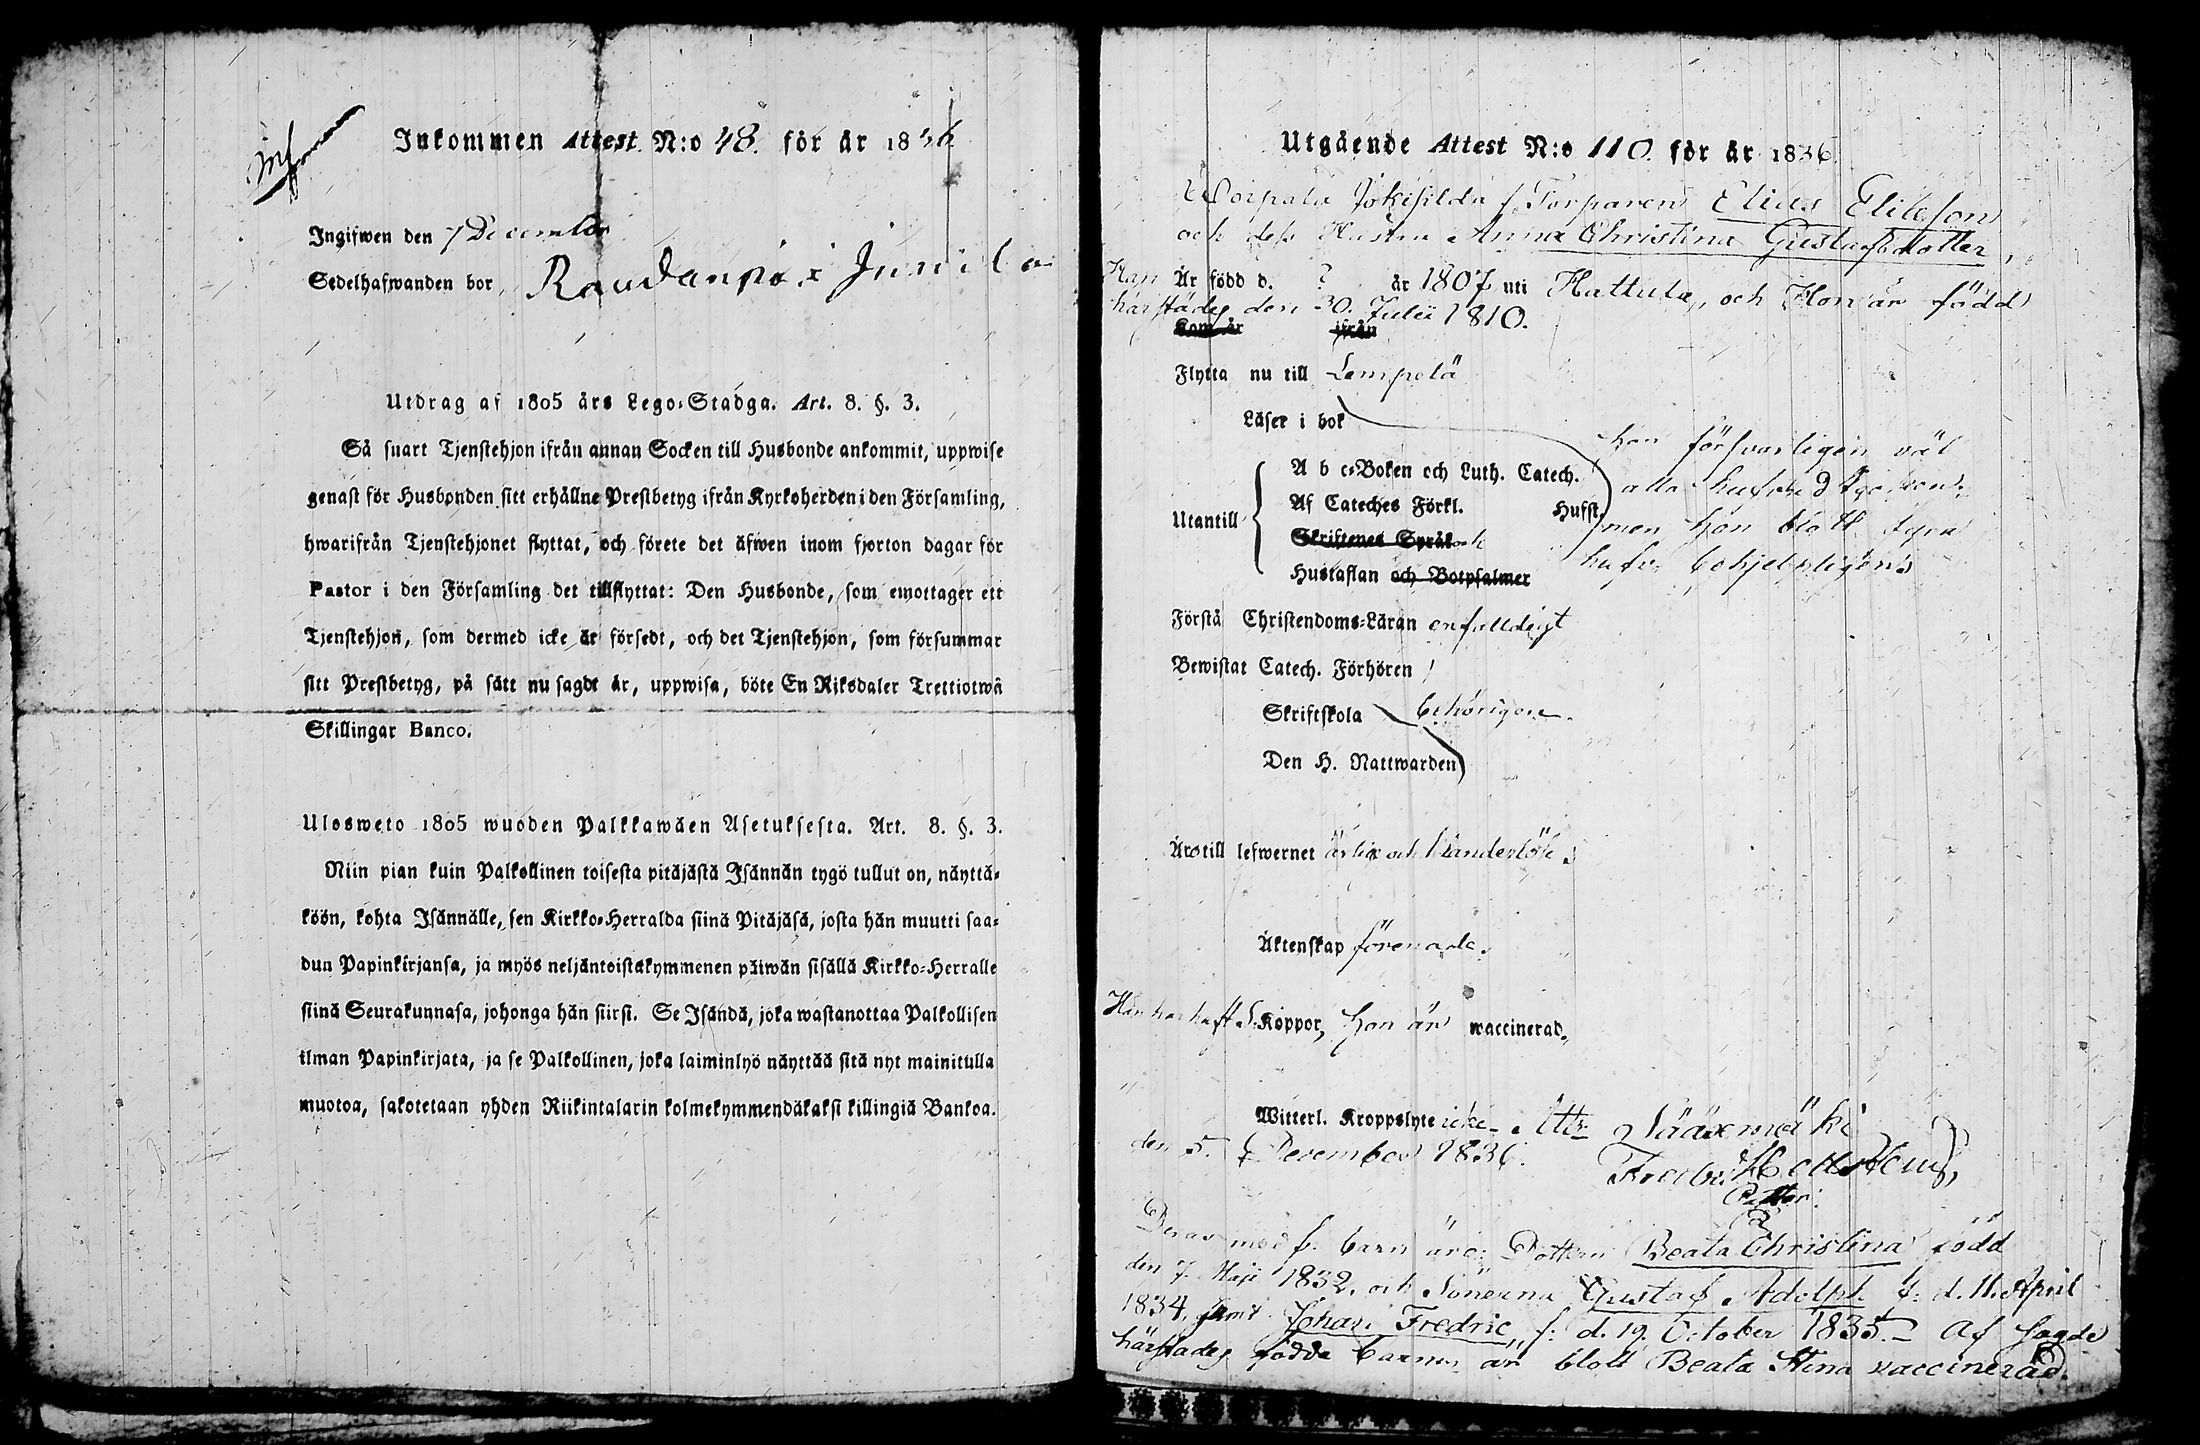 Inkommen Attest N:o 48. för år 1836
Ingifwen den 7 December
Sedelhafwanden bor
Utdrag af 1805 års Lego-Stadga. Art. 8. §. 3.
Så snart Tjenstehjon ifrån annan Socken till Husbonde ankommit, uppwise
genast för Husbonden sitt erhållne Prestbetyg ifrån Kyrkoherden i den Församling,
hwarifrån Tjenstehjonet flyttat, och förete det äfwen inom fjorton dagar för
Pastor i den Församling det tillflyttat: Den Husbonde, som emottager ett
Tjenstehjon, som dermed icke är försedt, och det Tjenstehjon, som försummar
sitt Prestbetyg, på sätt nu sagdt är, uppwisa, böte En Riksdaler Trettiotwå
Skillingar Banco.
Ulosweto 1805 wuoden Palkkawäen Asetuksesta. Art. 8. §. 3.
Niin pian kuin Palkollinen toisesta pitäjästä Isännän tygö tullut on, näyttä-
köön, kohta Isännälle, sen Kirkko-Herralda siinä Pitäjäsä, josta hän muutti saa-
dun Papinkirjansa, ja myös neljäntoistakymmenen päiwän sisällä Kirkko-Herralle
siinä Seurakunnasa, johonga hän siirsi. Se Isändä, joka wastanottaa Palkollisen
ilman Papinkirjata, ja se Palkollinen, joka laiminlyö näyttää sitä nyt mainitulla
muotoa, sakotetaan yhden Riikintalarin kolmekymmendäkaksi killingiä Bankoa.
Utgående Attest N:o 110. för år 1836.
Torparen Elias Eliesson
och dess Hustru Anna Christina Gustafsdotter,
Han Är född d. ? år 1807 uti Hattula, och Hon är född
härstädes den 30. Julii 1810.
Kom år ifrån
Flytta nu till Lempelä
Läser i bok
hon försvarligen väl
A b c-Boken och Luth. Catech.
alla hufvud
Utantill Af Cateches Förkl. Hufst.
men hon blott fyra
Skriftenes Språk och
Hustaflan och Botpsalmer
hufv. behjelpligen
Förstå Christendoms-Läran enfalldigt
Bewistat Catech. Förhören
Skriftskola behörigen.
Den H. Nattwarden
Äro till lefwernet ärliga och klanderlöse.
Äktenskap förenade.
Han har haft S. Koppor, hon är waccinerad.
Witterl. Kroppslyte icke. Att. Sääxmäki
den 5. December 1836.
Deras med f. barn äro: Dottern Beata Christina född
den 7. Maji 1832, och Sönerna Gustaf Adolph f. d. 11. April
1834, samt Johan Fredric, f. d. 19. October 1835. Af sagde
härstädes födda barnen är blott Beata Stina vaccinerad.